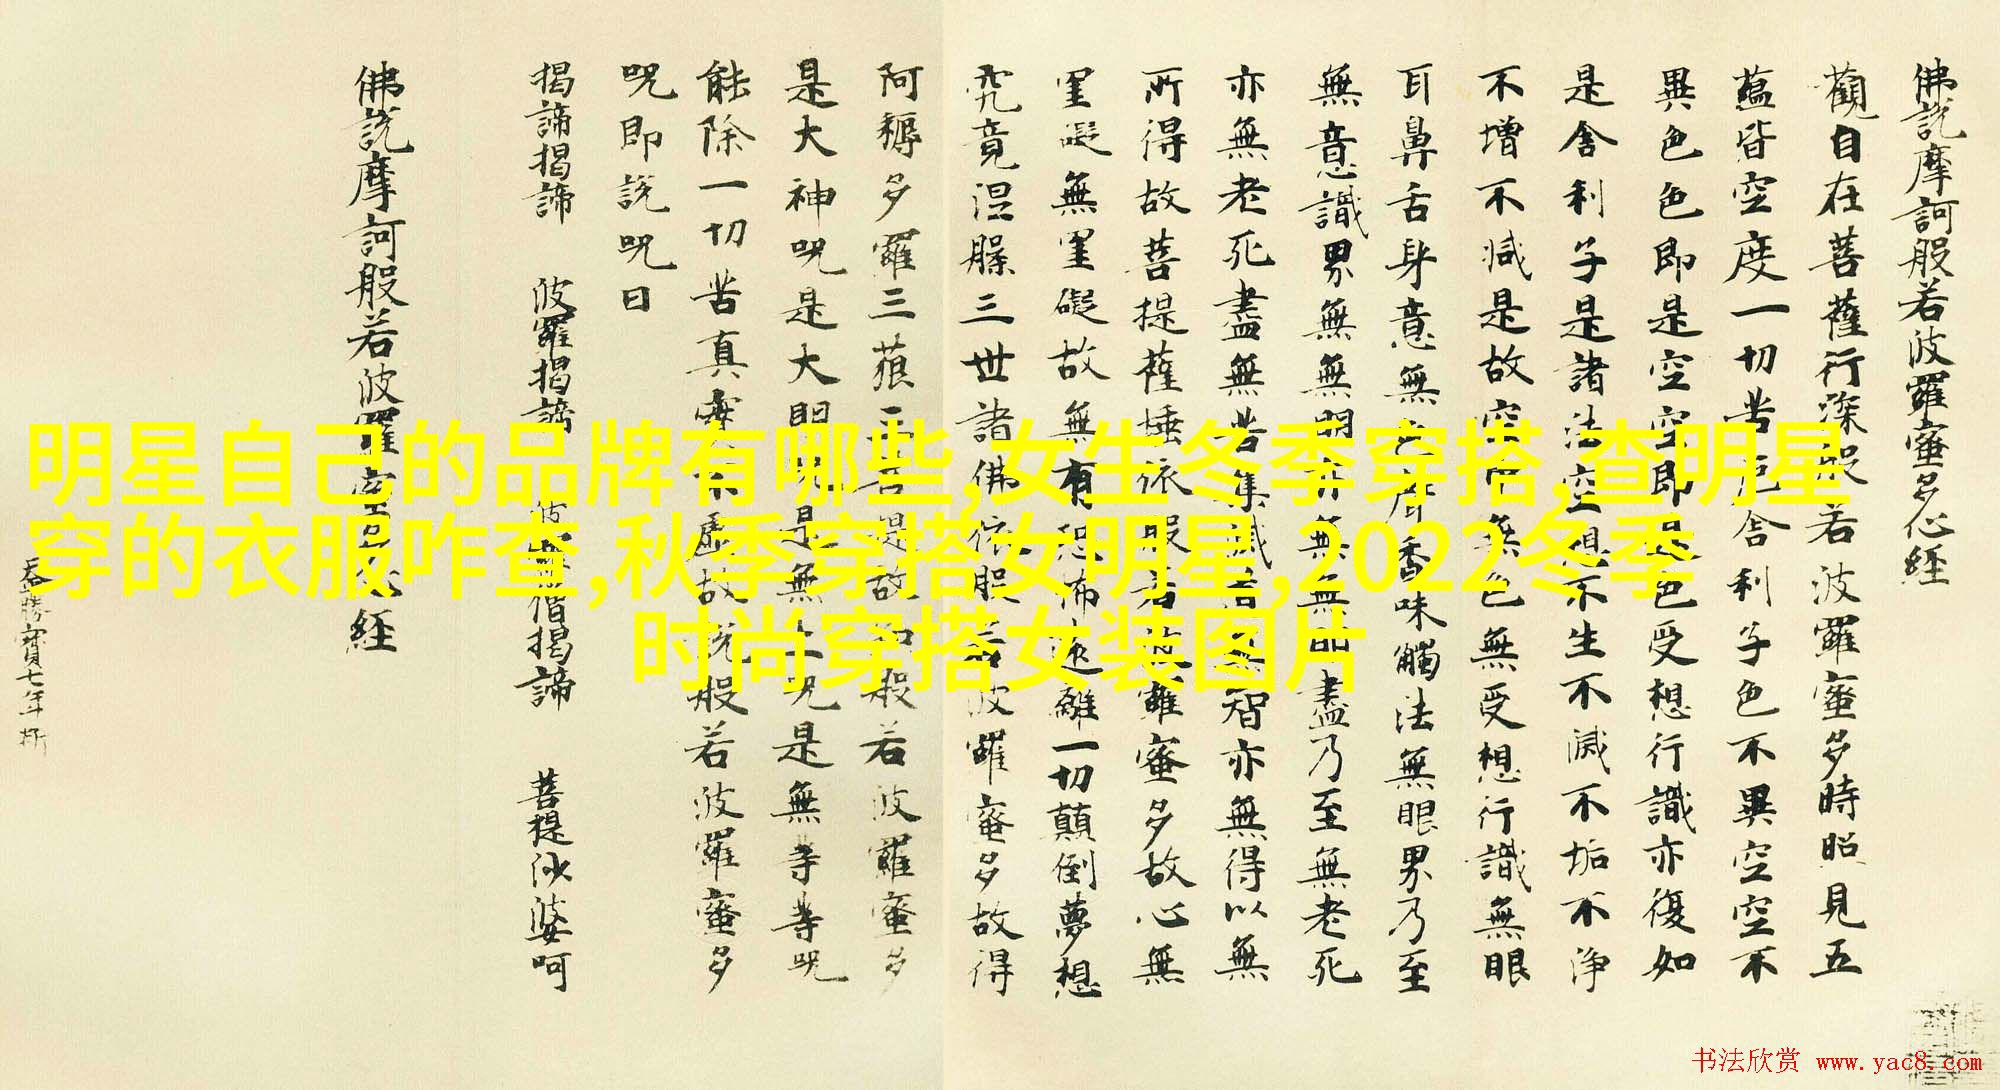 佛說摩訶般若波羅蜜多心経
觀自在菩薩行深般若波羅蜜多時照見五
蘊皆空度一切苦厄舍利子色不異空空不
異色色即是空空即是色受想行識亦復如
是舍利子是諸法空想不生不滅不垢不淨
不增不減是故空中無色無受想行識無眼
耳鼻舌身意無色聲香味觸法無眼界乃至
無意識界無無明亦無無明盡乃至無老死
亦無老死盡無苦集滅道無智亦無得以無
所得故菩提薩埵依般若波羅蜜多故心無
罣礙無罣礙故無有恐怖遠離一切顛倒夢想
究竟涅槃三世諸佛依般若波羅蜜多故得
阿耨多羅三藐三菩提故知般若波羅蜜多
是大神咒是大明咒是無上咒是無等等咒
能除一切苦真實不虛故說般若波羅蜜多
咒即說咒曰
揭諦揭諦 波羅揭諦 波羅僧揭諦 菩提沙婆呵
佛說摩訶般若波羅蜜多心経
勝寶七年
明星自己的品牌有哪些,女生冬季穿搭,查明星
穿的衣服咋查,秋季穿搭女明星,2022冬季
时尚穿搭女装图片
书法欣赏 www.yac8.com